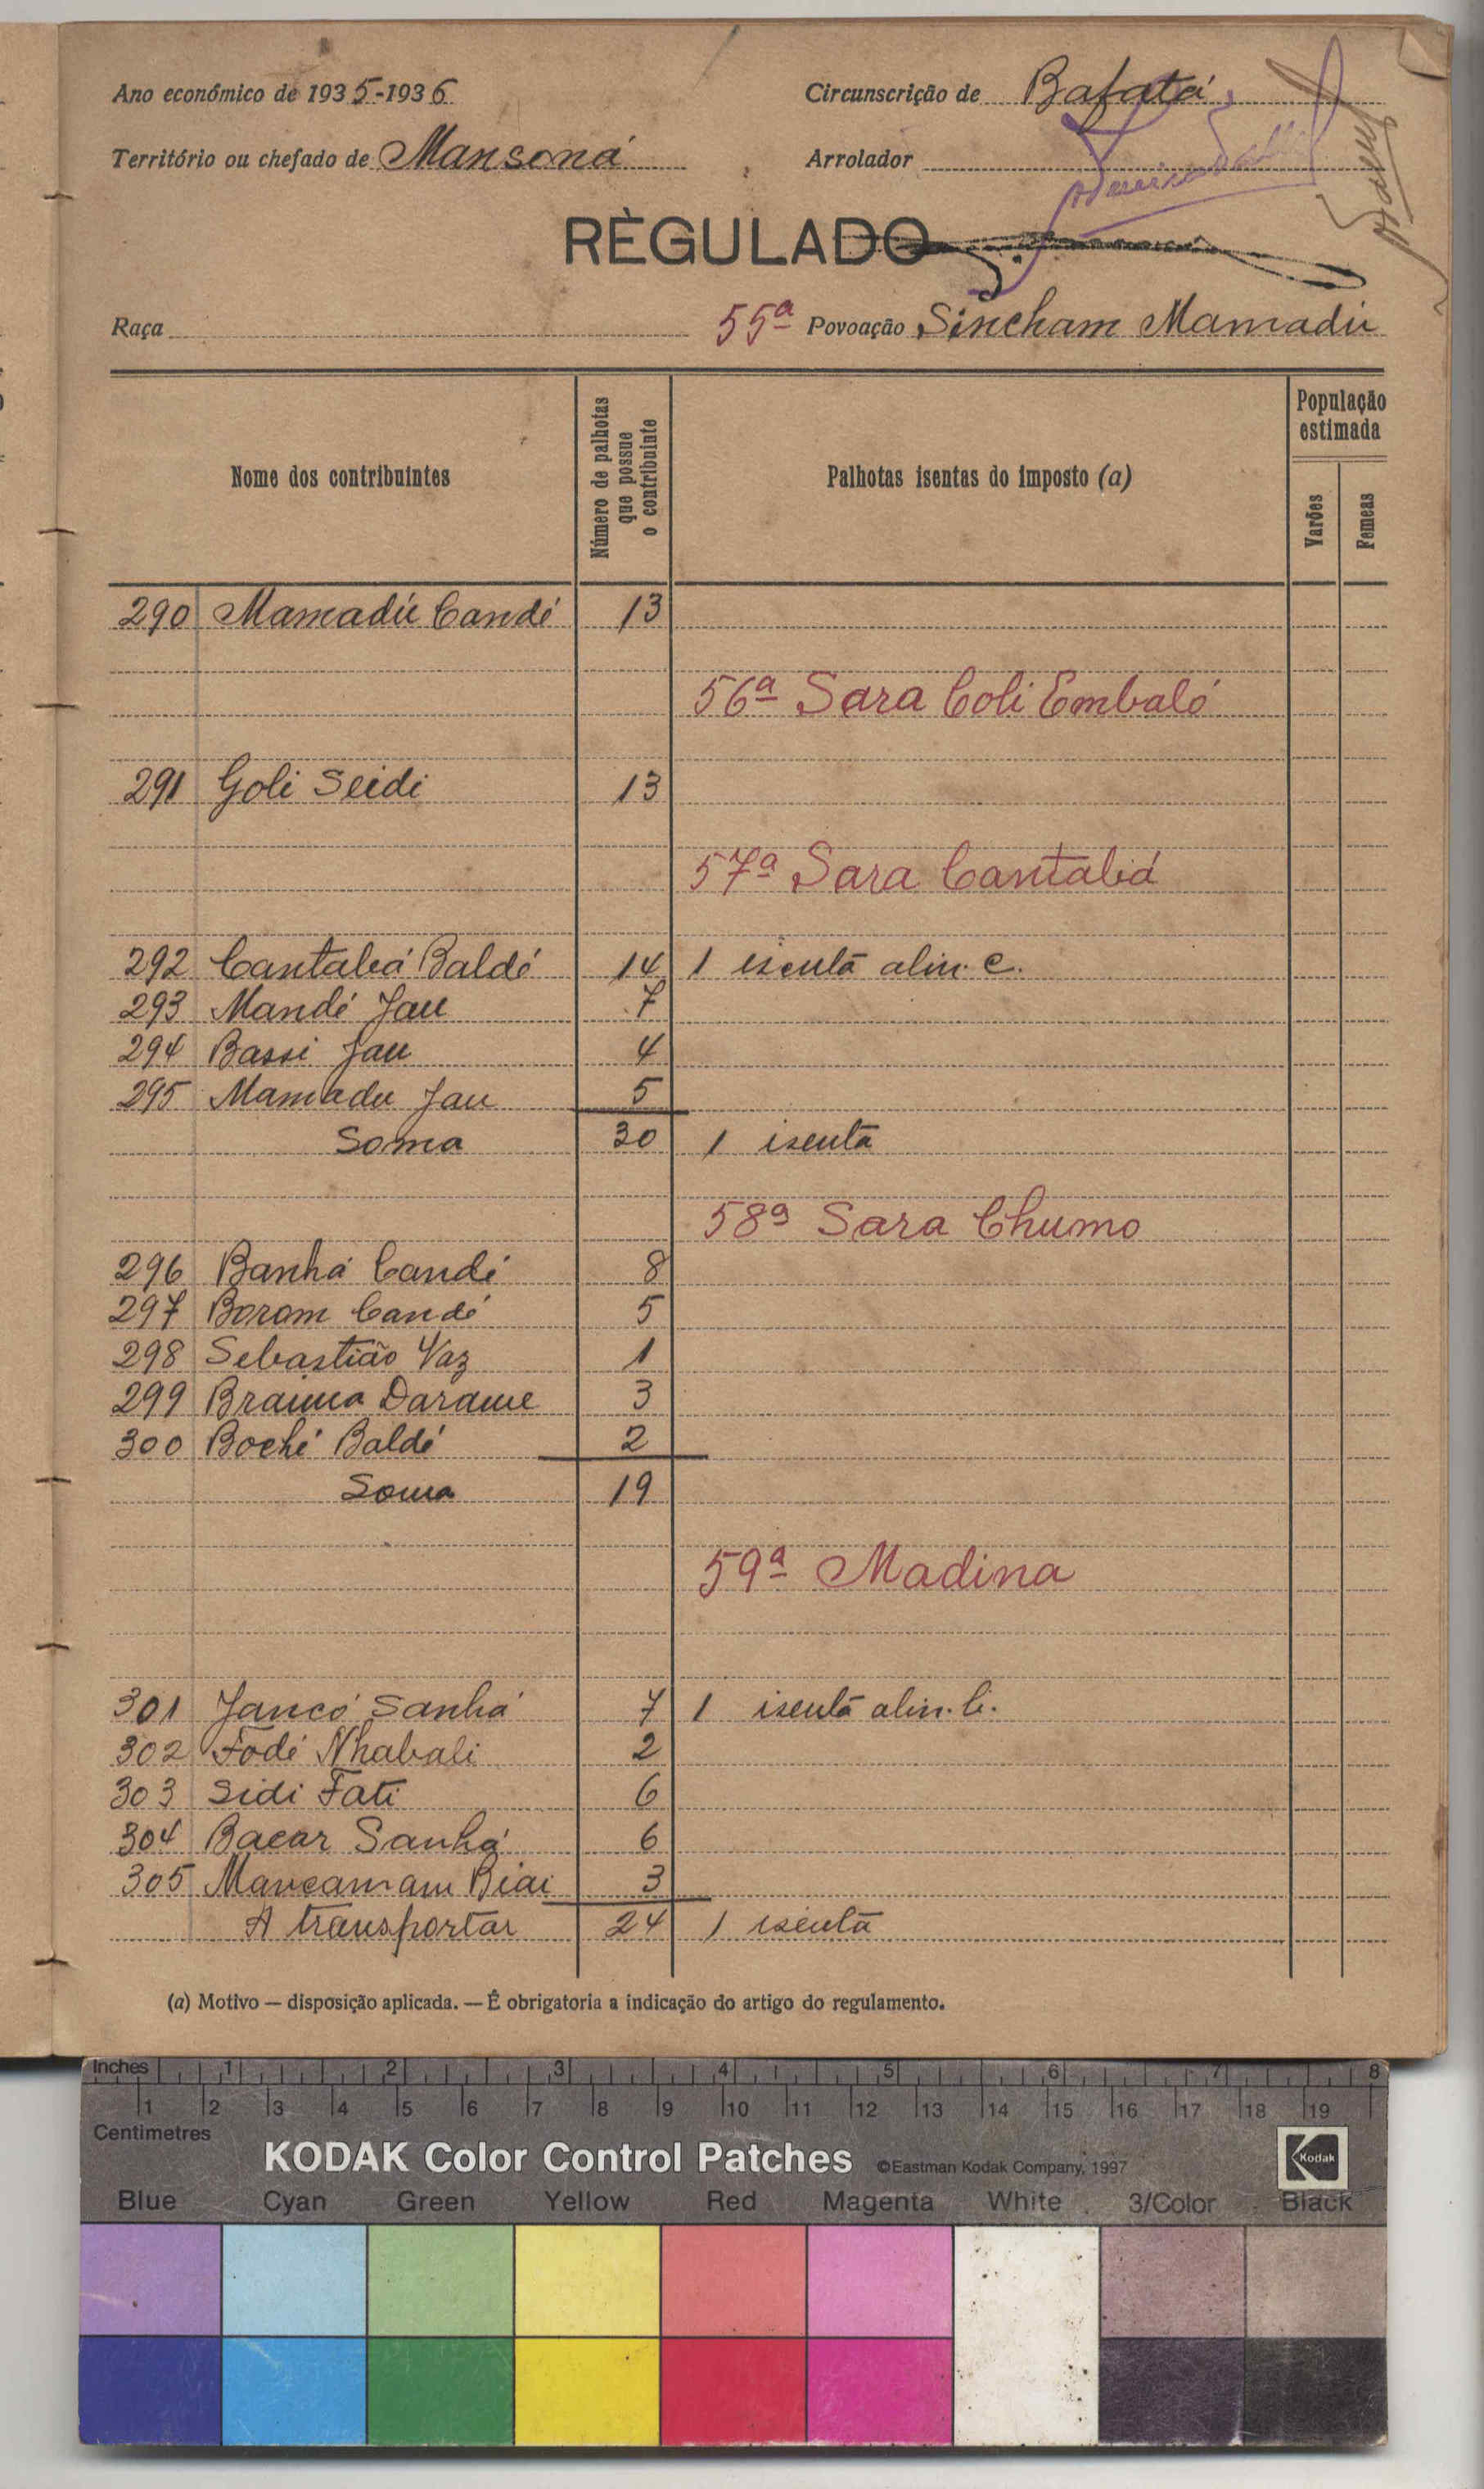 Ano económico de 1935-1936 Circunscrição de Bafatá
Território ou chefado de Mansoná Arrolador
RÈGULADO
Raça 55ª Povoação Sincham Mamadú
Nome dos contribuintes
Número de palhotas que possue o contribuinte
Palhotas isentas do imposto (a)
População estimada
Varões
Femeas
290 Mamadú Candé 13
56ª Sara Coli Embaló
291 Goli Seidi 13
57ª Sara Cantabá
292 Cantabá Baldé 14 1 isenta alin. c.
293 Mandé Jau 7
294 Bassi Jau 4
295 Mamadu Jau 5
Soma 30 1 isenta
58ª Sara Chumo
296 Banhá Candé 8
297 Borom Candé 5
298 Sebastião Vaz 1
299 Braima Darame 3
300 Boché Baldé 2
Soma 19
59ª Madina
301 Jancó Sanhá 7 1 isenta alin. b.
302 Fodé Nhabali 2
303 Sidi Fati 6
304 Bacar Sanhá 6
305 Mancamam Biai 3
A transportar 24 1 isenta
(a) Motivo — disposição aplicada. — É obrigatoria a indicação do artigo do regulamento.
Inches 1 2 3 4 5 6 7 8
1 2 3 4 5 6 7 8 9 10 11 12 13 14 15 16 17 18 19
Centimetres
KODAK Color Control Patches ©Eastman Kodak Company, 1997 Kodak
Blue Cyan Green Yellow Red Magenta White 3/Color Black